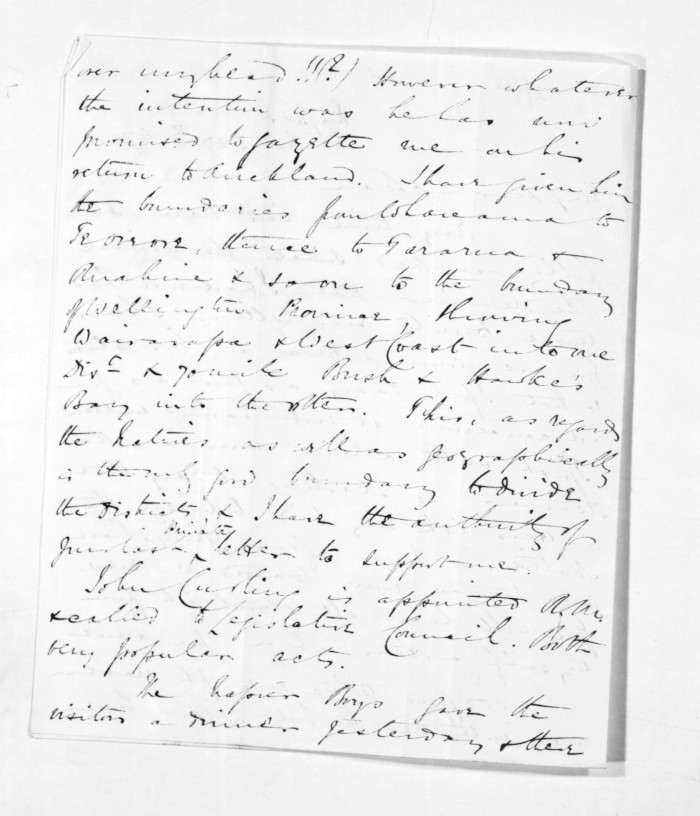 over my head!!!(?) However whatever
the intention was he has now
promised to gazette me on his
return to Auckland. I have given him
the boundaries from Whareama to
thence to Tararua &
Ruahine & so on to the boundary
of Wellington Province, throwing
Wairarapa & West Coast into one
Dist & 70 mile Bush & Hawke's
Bay into the other. This, as regards
the Natives as well as geographically
is the only good boundary to divide
the Districts & I have the authority of
your last private letter to support me.
John Curling is appointed R.M.
& called to Legislative Council. Both
very popular acts.
The Napier Boys gave the
visitors a dinner yesterday & there